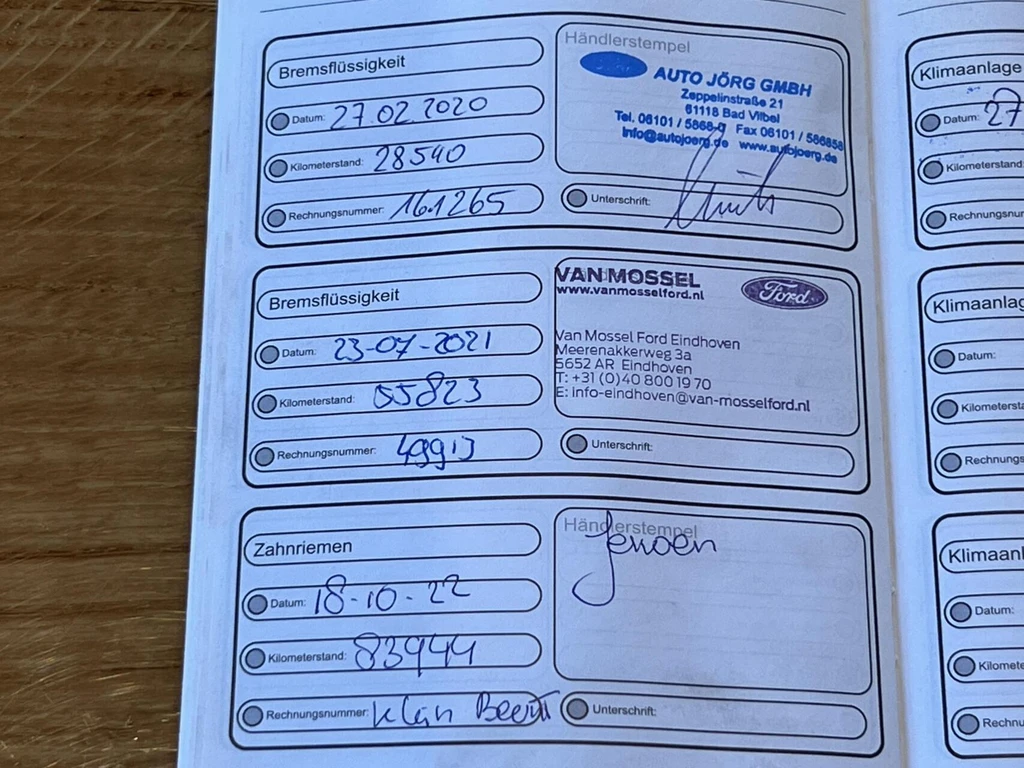 Bremsflüssigkeit
Datum: 27.02 2020
Kilometerstand: 28540
Rechnungsnummer: 161265
Händlerstempel
AUTO JÖRG GMBH
Zeppelinstraße 21
61118 Bad Vilbel
Tel. 06101 / 5868-0 Fax 06101 / 586858
info@autojoerg.de www.autojoerg.de
Unterschrift:
Bremsflüssigkeit
Datum: 23-07-2021
Kilometerstand: 55823
Rechnungsnummer: 49913
VAN MOSSEL
www.vanmosselford.nl
Ford
Van Mossel Ford Eindhoven
Meerenakkerweg 3a
5652 AR Eindhoven
T: +31 (0)40 800 19 70
E: info-eindhoven@van-mosselford.nl
Unterschrift:
Zahnriemen
Datum: 18-10-22
Kilometerstand: 83944
Rechnungsnummer:
Händlerstempel
Jeroen
Unterschrift:
Klimaanlage
Datum: 27
Kilometerstand:
Rechnungsnur
Klimaanlag
Datum:
Kilometersta
Rechnungs
Klimaanl
Datum:
Kilomete
Rechnu